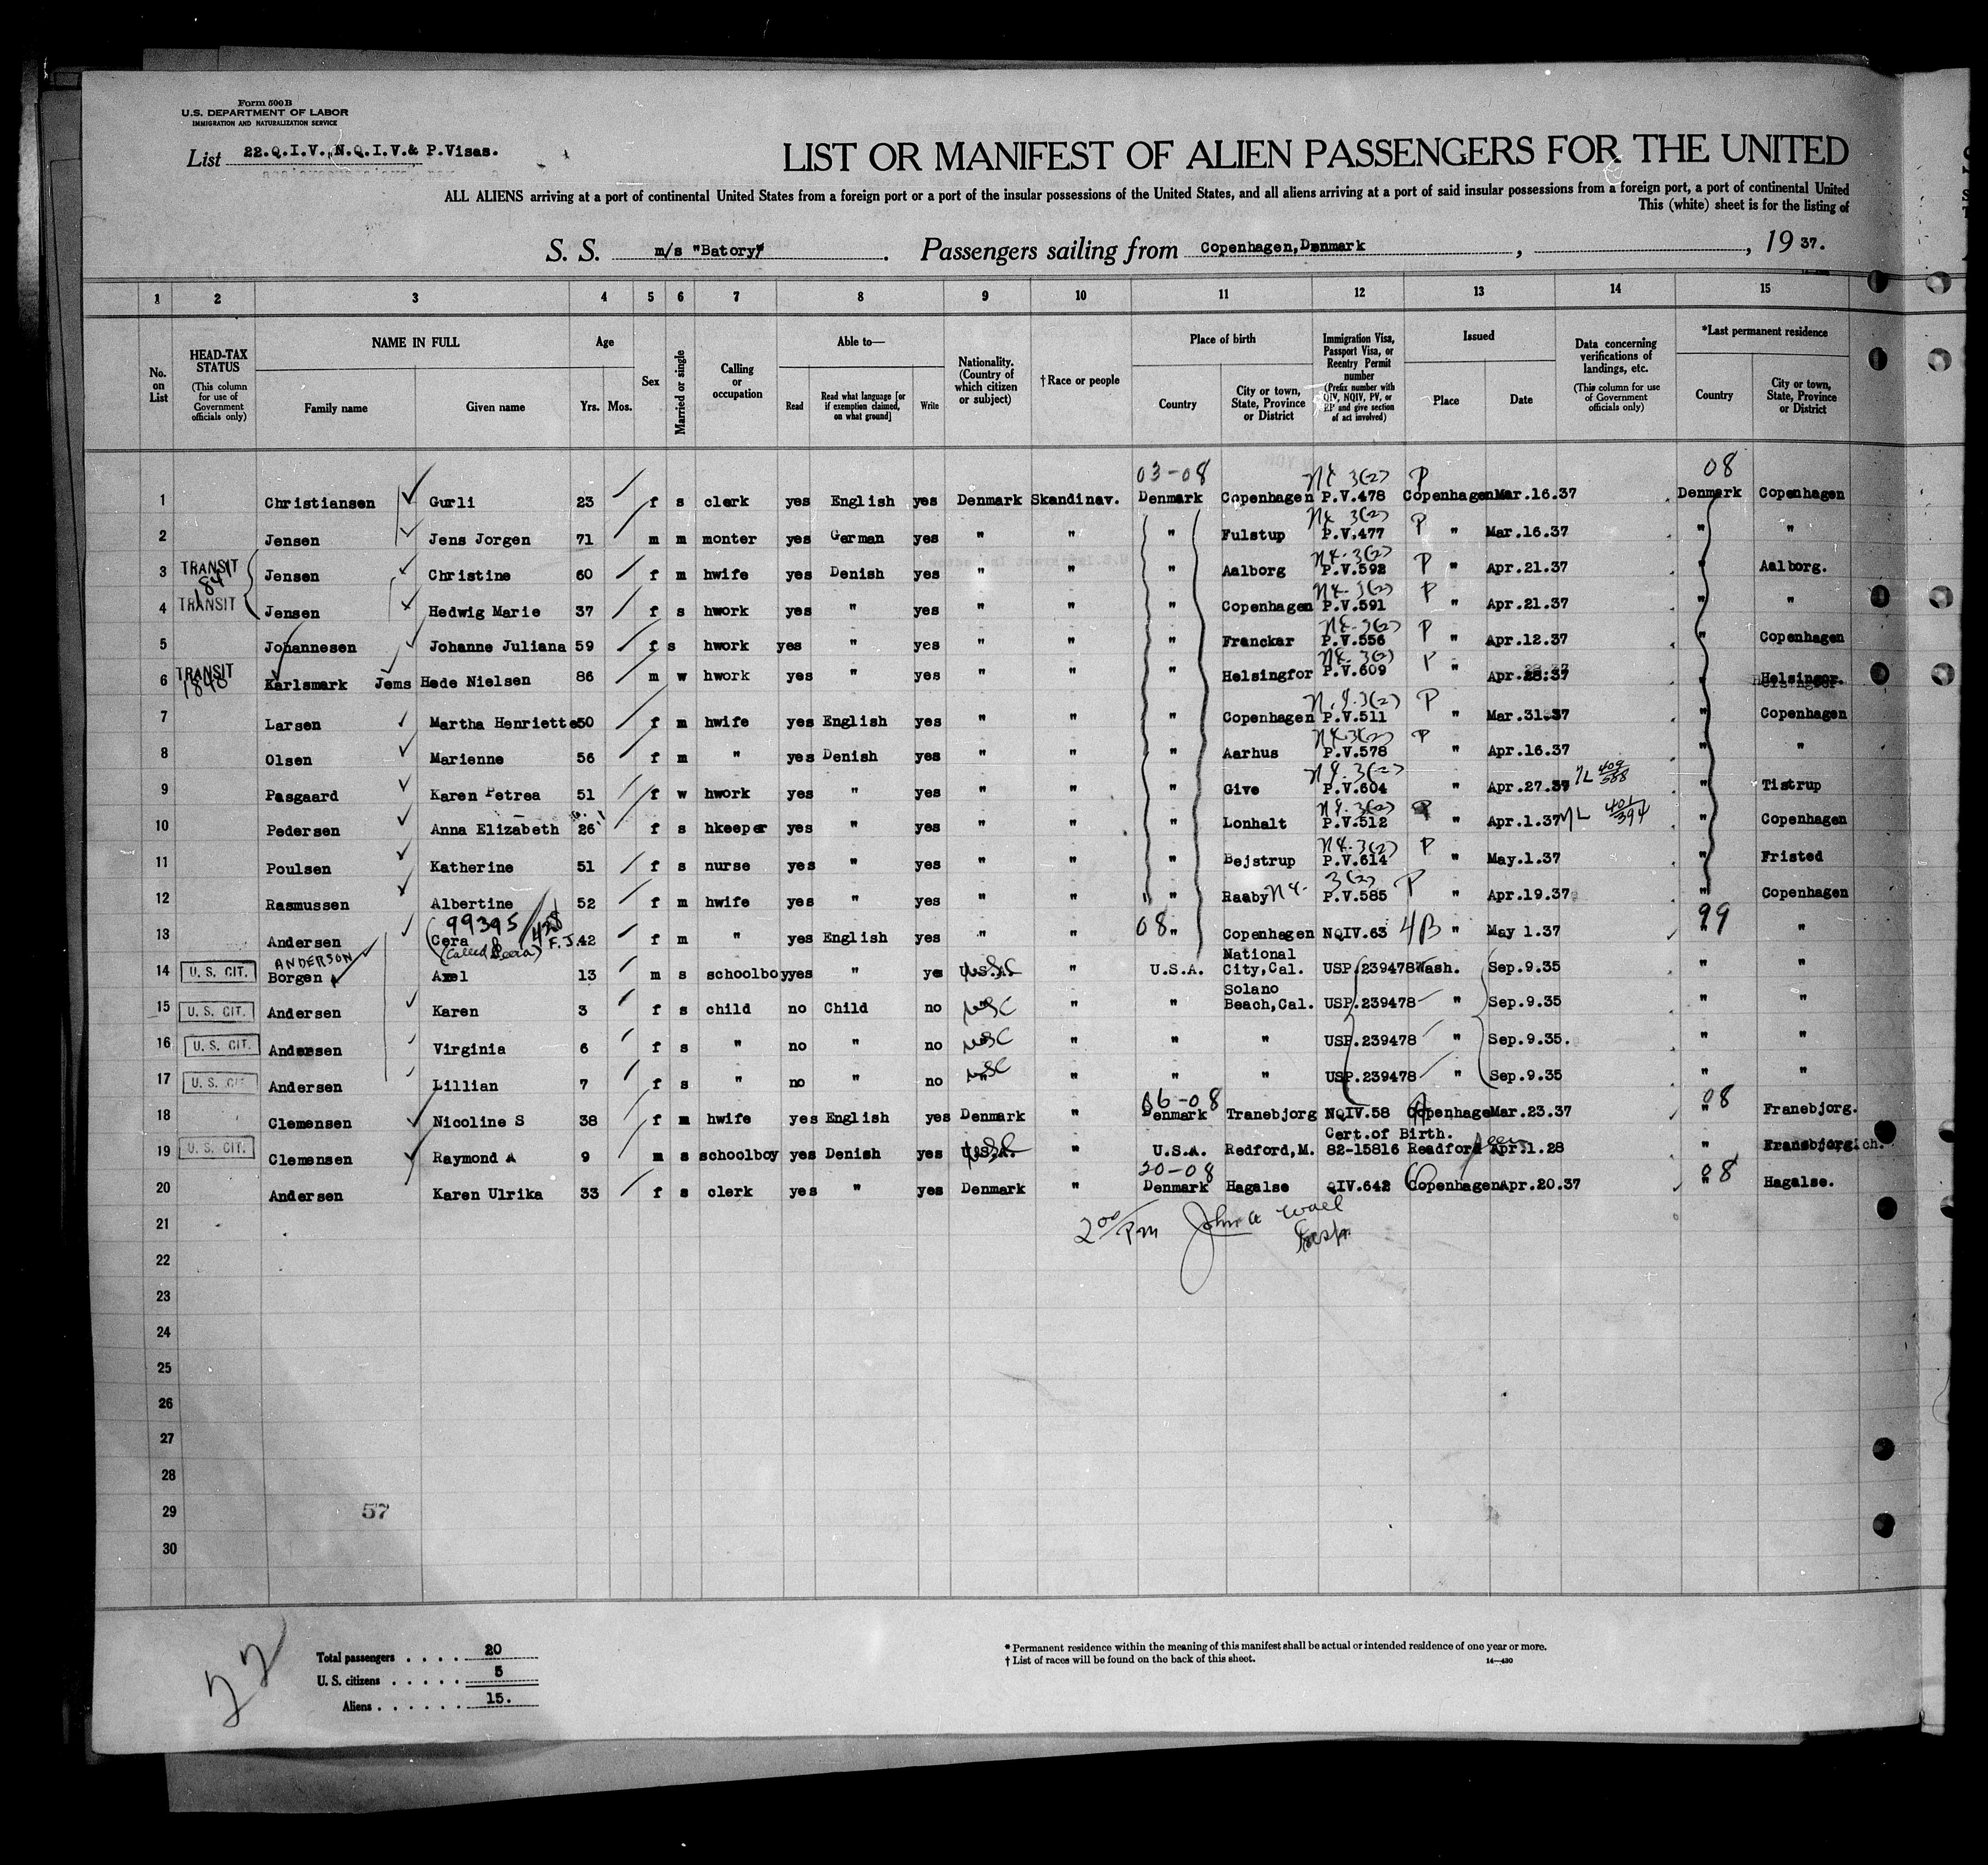 Form 500B
U.S. DEPARTMENT OF LABOR
IMMIGRATION AND NATURALIZATION SERVICE
List 22.Q.I.V., N.Q.I.V.& P.Visas.
LIST OR MANIFEST OF ALIEN PASSENGERS FOR THE UNITED
ALL ALIENS arriving at a port of continental United States from a foreign port or a port of the insular possessions of the United States, and all aliens arriving at a port of said insular possessions from a foreign port, a port of continental United
This (white) sheet is for the listing of
S. S. m/s "Batory" . Passengers sailing from Copenhagen,Denmark , , 19 37.
1 2 3 4 5 6 7 8 9 10 11 12 13 14 15
No. on List
HEAD-TAX STATUS (This column for use of Government officials only)
NAME IN FULL Family name Given name
Age Yrs. Mos.
Sex
Married or single
Calling or occupation
Able to— Read Read what language [or if exemption claimed, on what ground] Write
Nationality. (Country of which citizen or subject)
†Race or people
Place of birth Country City or town, State, Province or District
Immigration Visa, Passport Visa, or Reentry Permit number (Prefix number with QIV, NQIV, PV, or RP and give section of act involved)
Issued Place Date
Data concerning verifications of landings, etc. (This column for use of Government officials only)
*Last permanent residence Country City or town, State, Province or District
03-08 3(2) P 08
1 Christiansen Gurli 23 f s clerk yes English yes Denmark Skandinav. Denmark Copenhagen P.V.478 Copenhagen Mar.16.37 Denmark Copenhagen
3(2) P
2 Jensen Jens Jorgen 71 m m monter yes German yes " " " Fulstup P.V.477 " Mar.16.37 " "
3(2) P
3 TRANSIT 1841 Jensen Christine 60 f m hwife yes Denish yes " " " Aalborg P.V.592 " Apr.21.37 " Aalborg.
3(2) P
4 TRANSIT Jensen Hedwig Marie 37 f s hwork yes " yes " " " Copenhagen P.V.591 " Apr.21.37 " "
3(2) P
5 Johannesen Johanne Juliana 59 f s hwork yes " yes " " " Franckar P.V.556 " Apr.12.37 " Copenhagen
3(2) P
6 TRANSIT 1840 Karlsmark Jems Hede Nielsen 86 m w hwork yes " yes " " " Helsingfor P.V.609 " Apr.28.37 " Helsingør.
3(2) P
7 Larsen Martha Henriette 50 f m hwife yes English yes " " " Copenhagen P.V.511 " Mar.31.37 " Copenhagen
3(2) P
8 Olsen Marienne 56 f m " yes Denish yes " " " Aarhus P.V.578 " Apr.16.37 " "
3(2)
9 Pasgaard Karen Petrea 51 f w hwork yes " yes " " " Give P.V.604 " Apr.27.37 409/588 " Tistrup
3(2) P
10 Pedersen Anna Elizabeth 26 f s hkeeper yes " yes " " " Lonhalt P.V.512 " Apr.1.37 401/394 " Copenhagen
3(2) P
11 Poulsen Katherine 51 f s nurse yes " yes " " " Bejstrup P.V.614 " May.1.37 " Fristed
3(2) P
12 Rasmussen Albertine 52 f m hwife yes " yes " " " Raaby P.V.585 " Apr.19.37 " Copenhagen
99395/428
13 Andersen Cera F.J. 42 f m " yes English yes " " 08 " Copenhagen NQIV.63 4B " May 1.37 99 " "
ANDERSON
14 U. S. CIT. Borgen Axel 13 m s schoolboy yes " ye U.S.A. USC " U.S.A. National City,Cal. USP.239478 Wash. Sep.9.35 " "
15 U. S. CIT. Andersen Karen 3 f s child no Child no USC " " Solano Beach,Cal. USP.239478 " Sep.9.35 " "
16 U. S. CIT. Andersen Virginia 6 f s " no " no USC " " " USP.239478 " Sep.9.35. " "
17 U. S. CIT. Andersen Lillian 7 f s " no " no USC " " " USP.239478 " Sep.9.35 " "
06-08 08
18 Clemensen Nicoline S 38 f m hwife yes English yes Denmark " Denmark Tranebjorg NQIV.58 Copenhage Mar.23.37 " Franebjorg.
Cert.of Birth.
19 U. S. CIT. Clemensen Raymond A 9 m s schoolboy yes Denish yes U.S.A. USC " U.S.A. Redford,M. 82-15816 Readford Apr.1.28 " Franebjorg.
20-08 08
20 Andersen Karen Ulrika 33 f s clerk yes " yes Denmark " Denmark Hagalse QIV.642 Copenhagen Apr.20.37 " Hagalse.
21
2 00/Pm John A
22
23
24
25
26
27
28
29 57
30
22
Total passengers . . . . 20
U. S. citizens . . . . . 5
Aliens . . . . . . 15.
* Permanent residence within the meaning of this manifest shall be actual or intended residence of one year or more.
† List of races will be found on the back of this sheet.
14—430